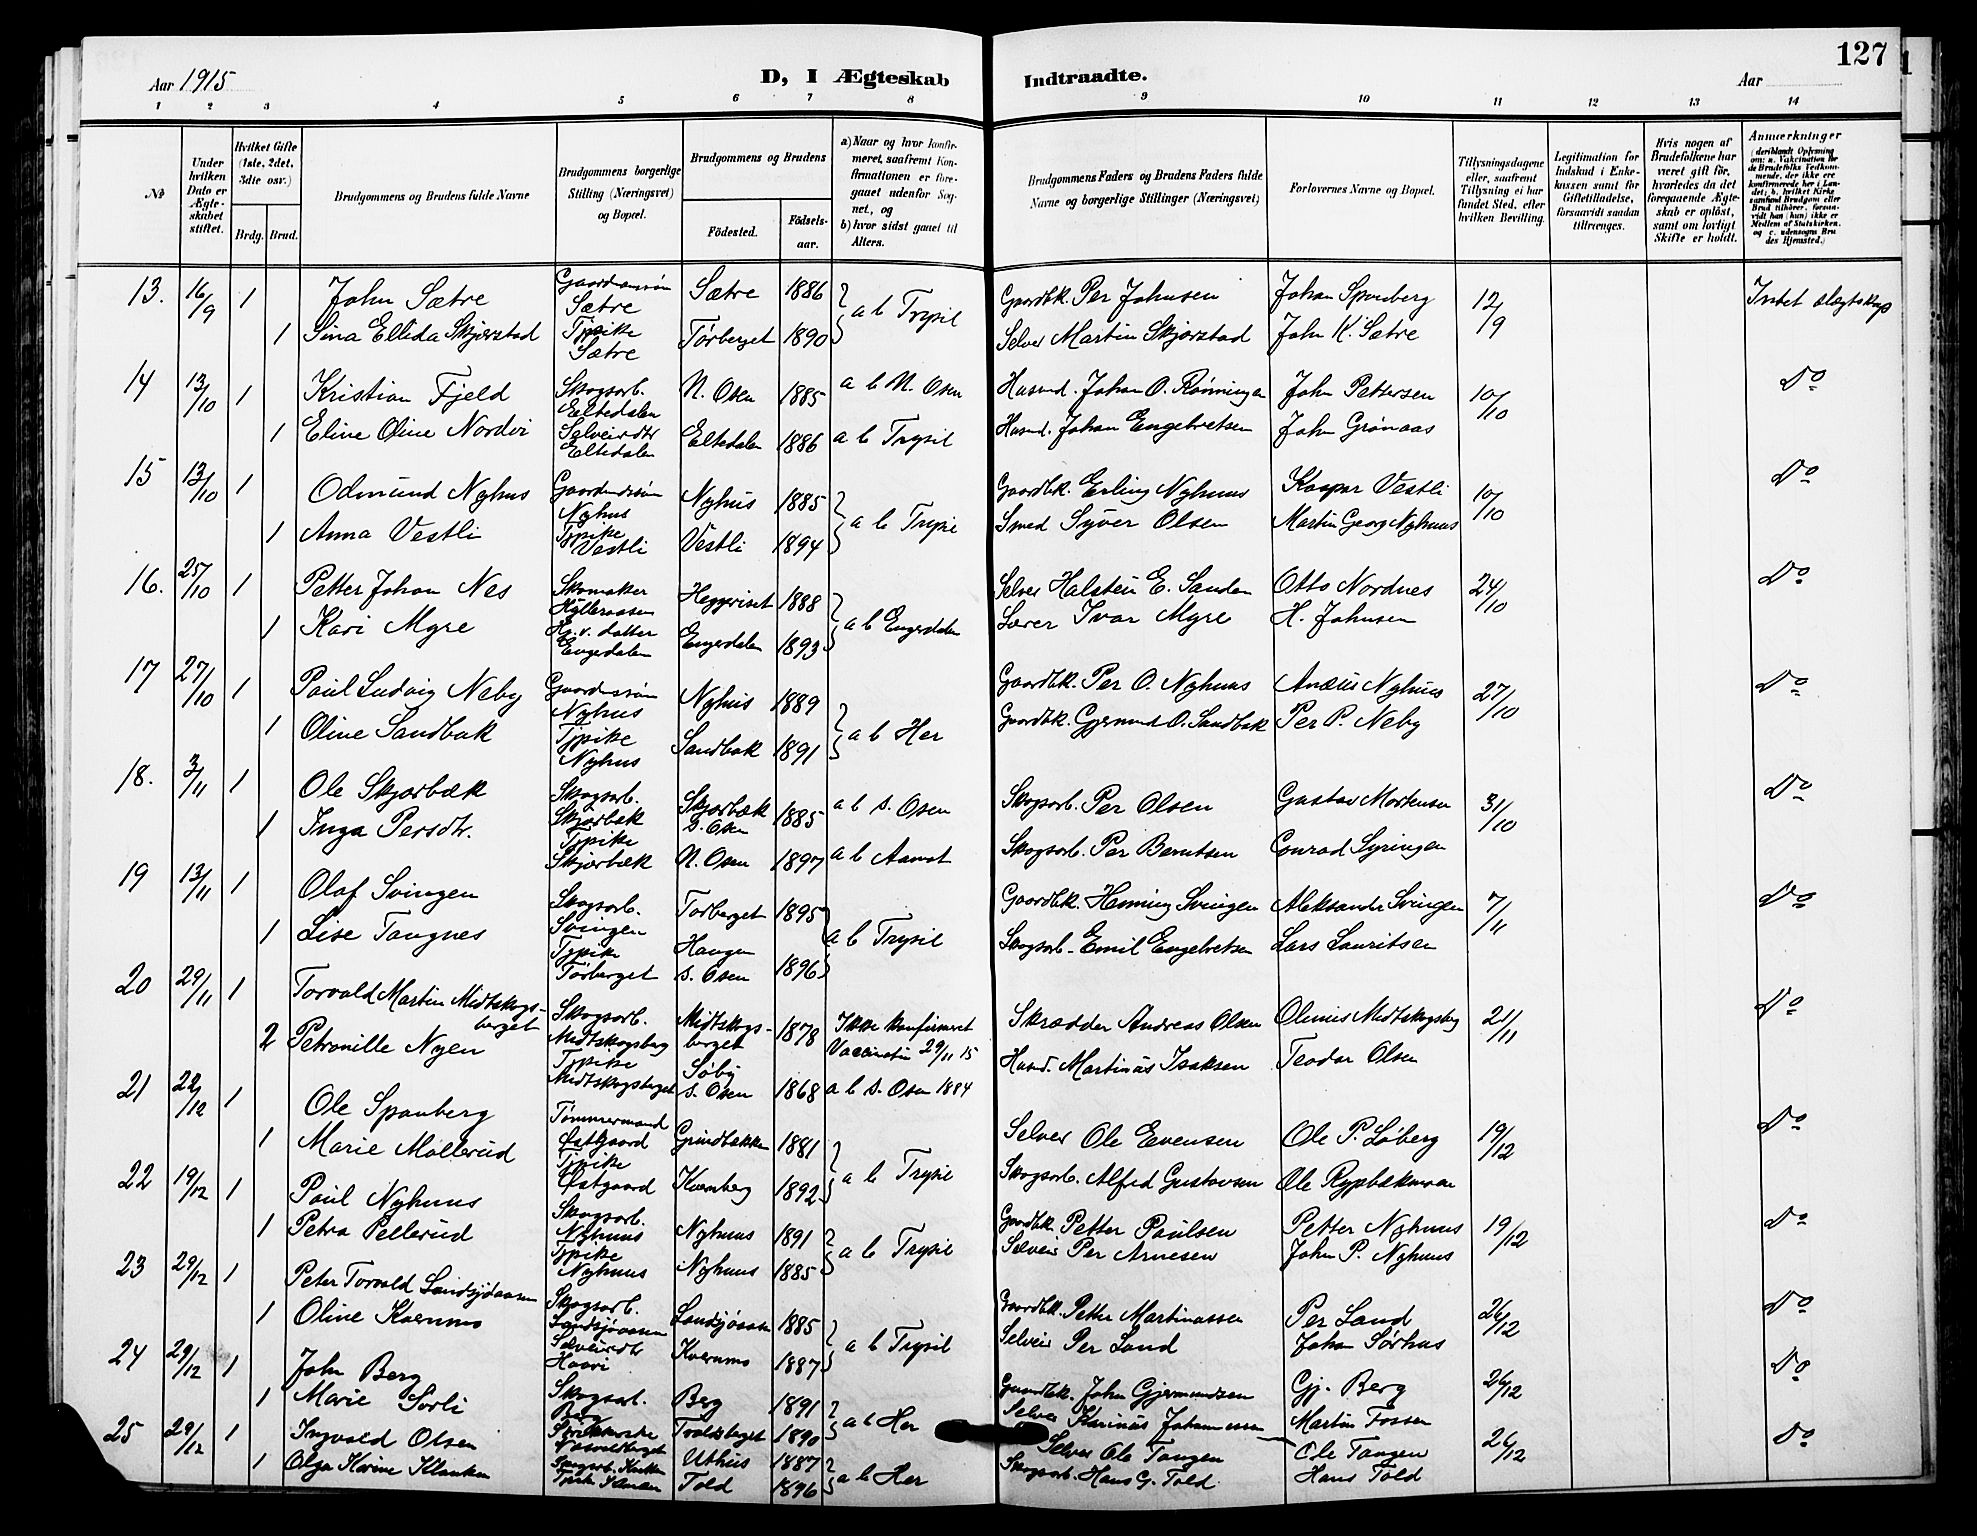 127
Aar 1915
D, I Ægteskab
Indtraadte.
Aar
1 2 3 4 5 6 7 8 9 10 11 12 13 14
No
Under hvilken Dato er Ægteskabet stiftet.
Hvilket Gifte (1ste, 2det, 3die osv.)
Brdg. Brud.
Brudgommens og Brudens fulde Navne
Brudgommens borgerlige Stilling (Næringsvei) og Bopæl.
Brudgommens og Brudens
Födested.
Födsels-aar.
a) Naar og hvor konfirmeret, saafremt Konfirmationen er foregaaet udenfor Sognet, og
b) hvor sidst gaaet til Alters.
Brudgommens Faders og Brudens Faders fulde Navne og borgerlige Stillinger (Næringsvei)
Forlovernes Navne og Bopæl.
Tillysningsdagene eller, saafremt Tillysning ei har fundet Sted, efter hvilken Bevilling.
Legitimation for Indskud i Enkekassen samt for Giftetilladelse, forsaavidt saadan tiltrænges.
Hvis nogen af Brudefolkene har været gift för, hvorledes da det foregaaende Ægteskab er oplöst, samt om lovligt Skifte er holdt.
Anmærkninger
13. 16/9 1 John Sætre Gaardmssøn Sætre Sætre 1886 a b Trysil Gaardbk. Per Johnsen Johan Sponberg 12/9 Intet slegtskap
1 Sina Ellida Skjærstad Tjpike Sætre Tørberget 1890 Selver Martin Skjærstad John K. Sætre
14 13/10 1 Kristian Fjeld Skogsarb. Eltedalen N. Osen 1885 a b N. Osen Husmd. Johan O. Rønningen John Pettersen 10/10 Do
1 Eline Oline Nordvi Selveirdtr Eltedalen Eltedalen 1886 a b Trysil Husmd. Johan Engebretsen John Grønaas
15 13/10 1 Odmund Nyhus Gaardmssøn Nyhus Nyhus 1885 a b Trysil Gaardbk. Erling Nyhuus Kaspar Vestli 10/10 Do
1 Anna Vestli Tjpike Vestli Vestli 1894 Smed Syver Olsen Martin Georg Nyhuus
16. 25/10 1 Petter Johan Nes Skomaker Hylleraasen Heggeriset 1888 a b Engerdalen Selver Halsten E. Sanden Otto Nordnes 24/10 Do
1 Kari Myre datter Engerdalen Engerdalen 1893 Lærer Ivar Myre H. Johnsen
17 27/10 1 Paul Ludvig Neby Gaardmssøn Nyhus Nyhus 1889 a b Her Gaardbk. Per O. Nyhuus Anæus Nyhuus 27/10 Do
1 Oline Sandbak Tjpike Nyhus Sandbak 1891 Gaardbk. Gjermund O. Sandbak Per P. Neby
18. 3/11 1 Ole Skjærbæk Skogsarb. Skjærbæk Skjærbæk S. Osen 1885 a b S. Osen Skogsarb. Per Olsen Gustav Mortensen 31/10 Do
1 Inga Persdtr. Tjpike Skjærbæk N. Osen 1897 a b Aamot Skogsarb. Per Berntsen Conrad Syringen
19 13/11 1 Olaf Svingen Skogsarb. Svingen Tørberget 1895 a b Trysil Gaardbk. Henning Svingen Aleksander Svingen 7/11 Do
1 Lise Tangnes Tjpike Tørberget Haugen S. Osen 1896 Skogsarb. Emil Engebretsen Lars Lauritsen
20 29/11 1 Torvald Martin Midtskogsberget Skogsarb. Midtskogsberg Midtskogsberget 1878 Ikke konfirmeret Vaccinatin 29/11 15 Skrædder Andreas Olsen Olinus Midtskogsberg 21/11 Do
2 Petronille Nyen Tjpike Midtskogsberget Søby S. Osen 1868 a b S. Osen 1884 Husmd. Martinus Isaksen Teodor Olsen
21 22/12 1 Ole Sponberg Tømmermand Østgaard Grindbakken 1881 a b Trysil Selveir Ole Evensen Ole P. Løberg 19/12 Do
1 Marie Møllerud Tjpike Østgaard Kvernberg 1892 Skogsarb. Alfred Gustavsen Ole Rypbækmoen
22 19/12 1 Paul Nyhuus Skogsarb. Nyhuus Nyhuus 1891 a b Trysil Gaardbk. Petter Paulsen Petter Nyhuus 19/12 Do
1 Petra Pellerud Tjpike Nyhuus Nyhuus 1885 Selveir Per Arnesen John P. Nyhuus
23 29/12 1 Peter Torvald Landsjøaasen Skogsarb. Landsjøaasen Landsjøaasen 1885 a b Trysil Gaardbk. Petter Martinussen Per Land 26/12 Do
1 Oline Kvernmo Selveirdtr Kvernmo 1887 Selveir Per Land Johan Sørhus
24 29/12 1 John Berg Skogsarb. Berg Berg 1891 a b Her Gaardbk. John Gjermundsen Gj. Berg 26/12 Do
1 Marie Sørli 1890 Selver Karinus Johannessen Martin Fossen
25 29/12 1 Ingvald Olsen Uthus 1887 a b Her Selver Ole Tangen Ole Tangen 26/12 Do
1 Olga Karine Klanken Told 1896 Skogsarb. Hans G. Told Hans Told